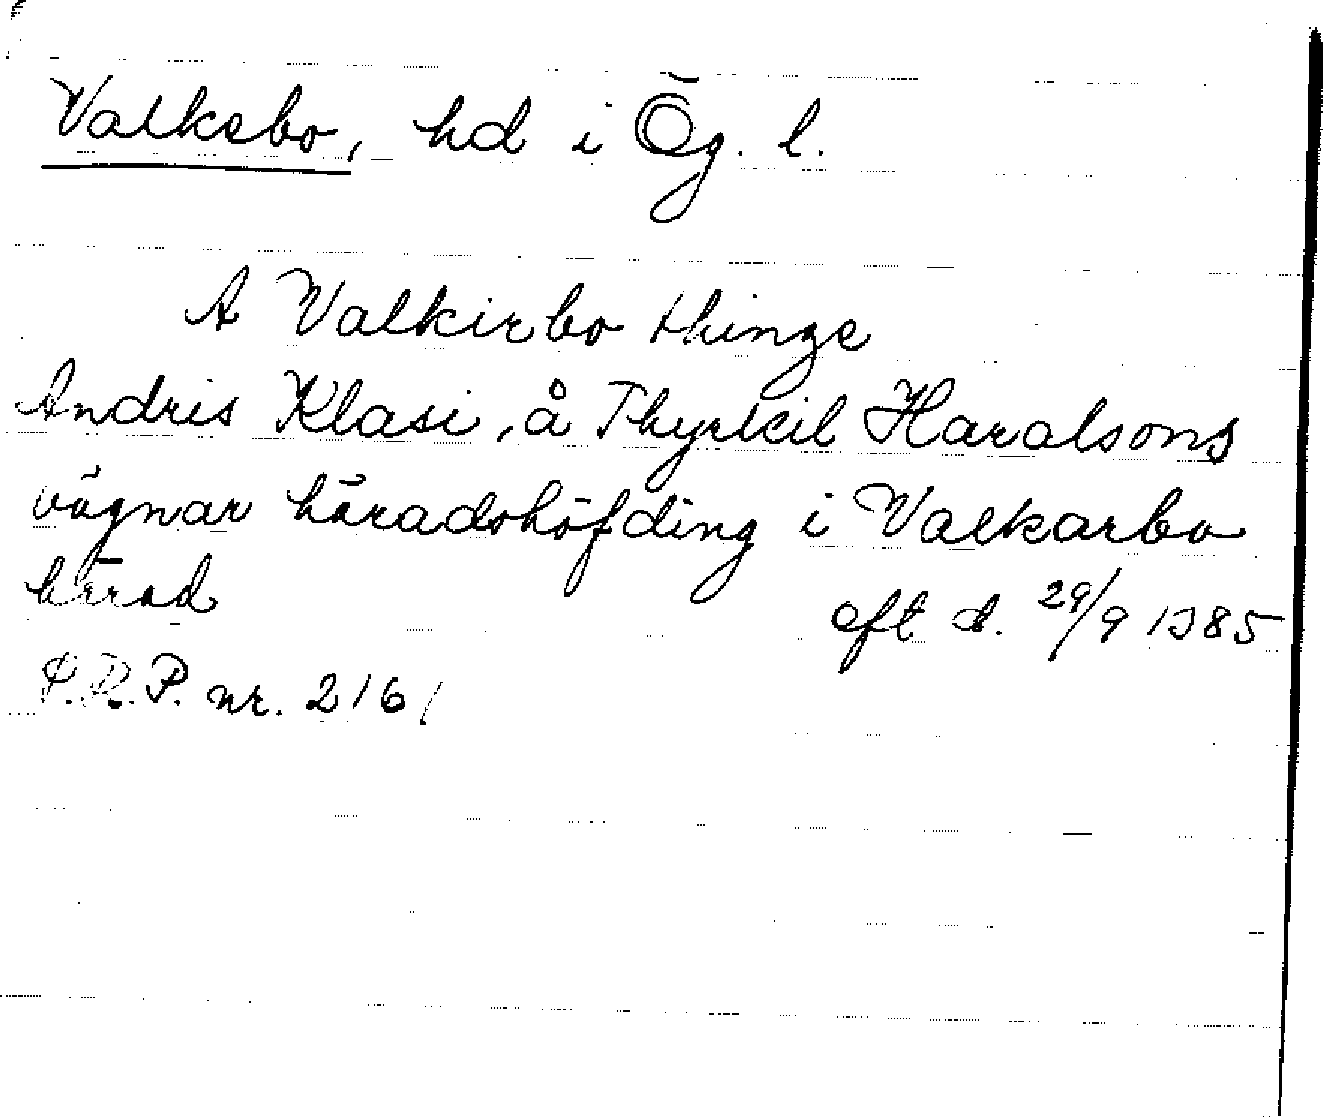 Valkebo, hd i Ög. l.
A Valkirbo thinge
Andris Klasi, å Thyrkil Haralsons
vägnar häradshöfding i Valkarbo
härad eft d. 29/9 1385
S.R.P. nr. 2161